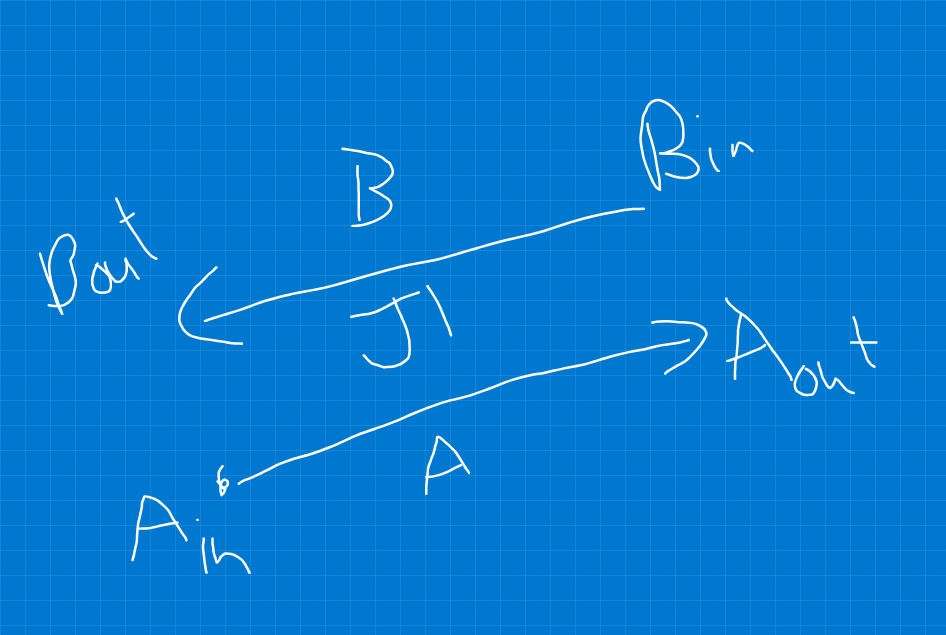 Bin
B
Bout
J1
Aout
A
Ain